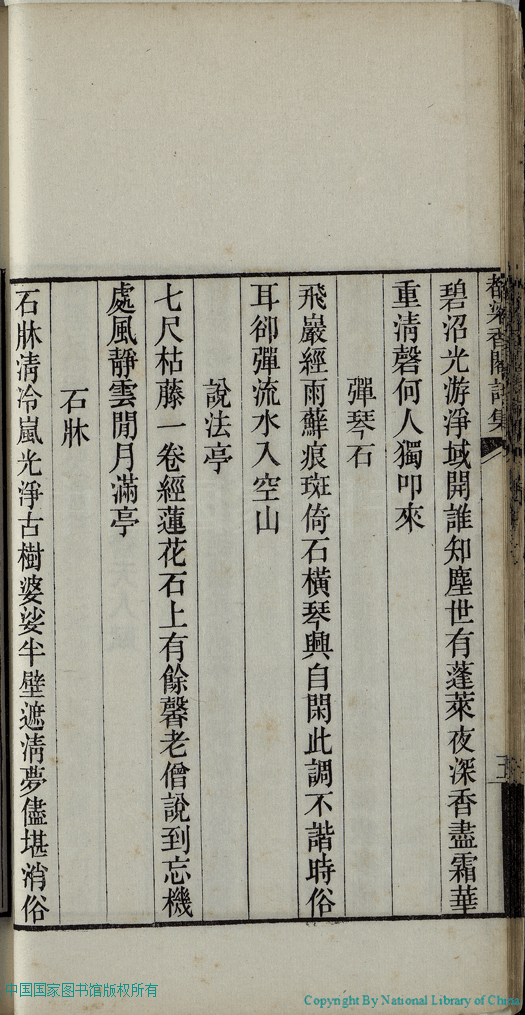 都梁香閣詩集
碧沼光游淨域開誰知塵世有蓬萊夜深香盡霜華
重清磬何人獨叩來
彈琴石
飛巖經雨蘚痕斑倚石橫琴興自閑此調不諧時俗
耳卻彈流水入空山
說法亭
七尺枯藤一卷經蓮花石上有餘馨老僧說到忘機
處風靜雲閒月滿亭
石牀
石牀清冷嵐光淨古樹婆娑半壁遮清夢儘堪消俗
中国国家图书馆版权所有
Copyright By National Library of China